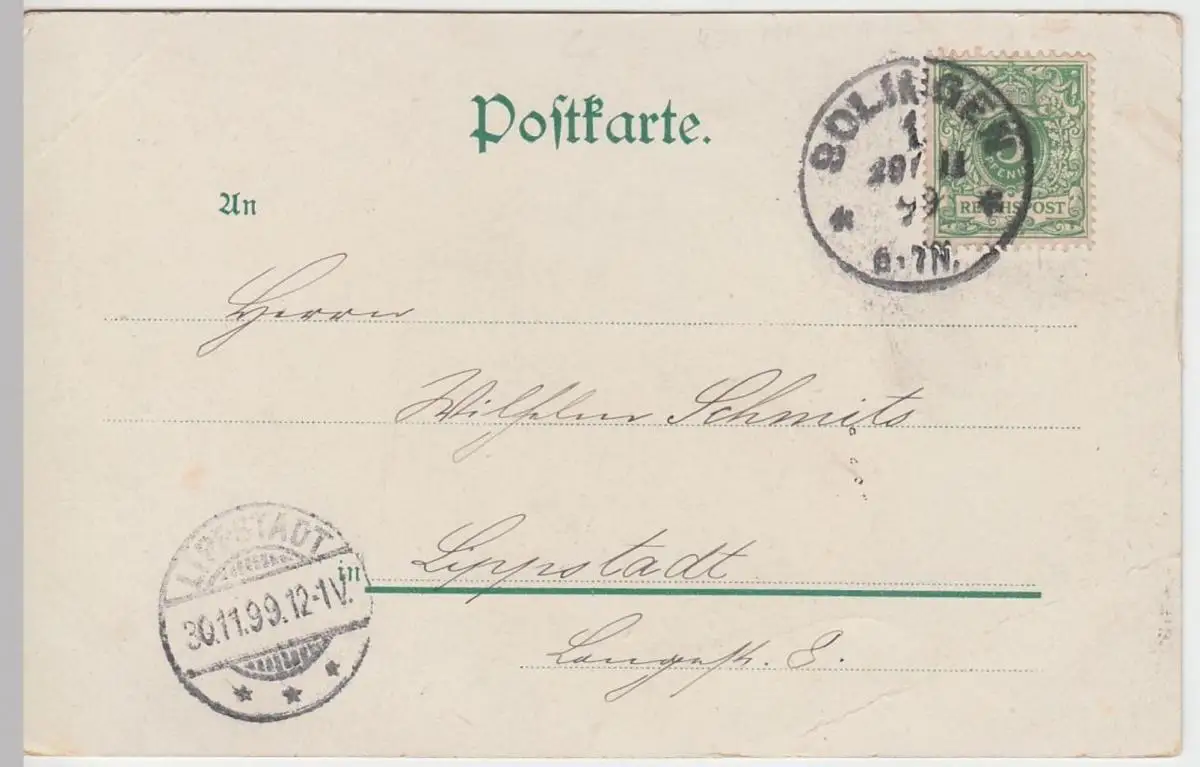 Postkarte.
SOLINGEN
1.
29/ 11
99
6-7N.
5
PFENNIG
REICHSPOST
An
Herrn
Wilhelm Schmits
LIPPSTADT
30.11.99.12-1V.
in Lippstadt
Langestr. 8.